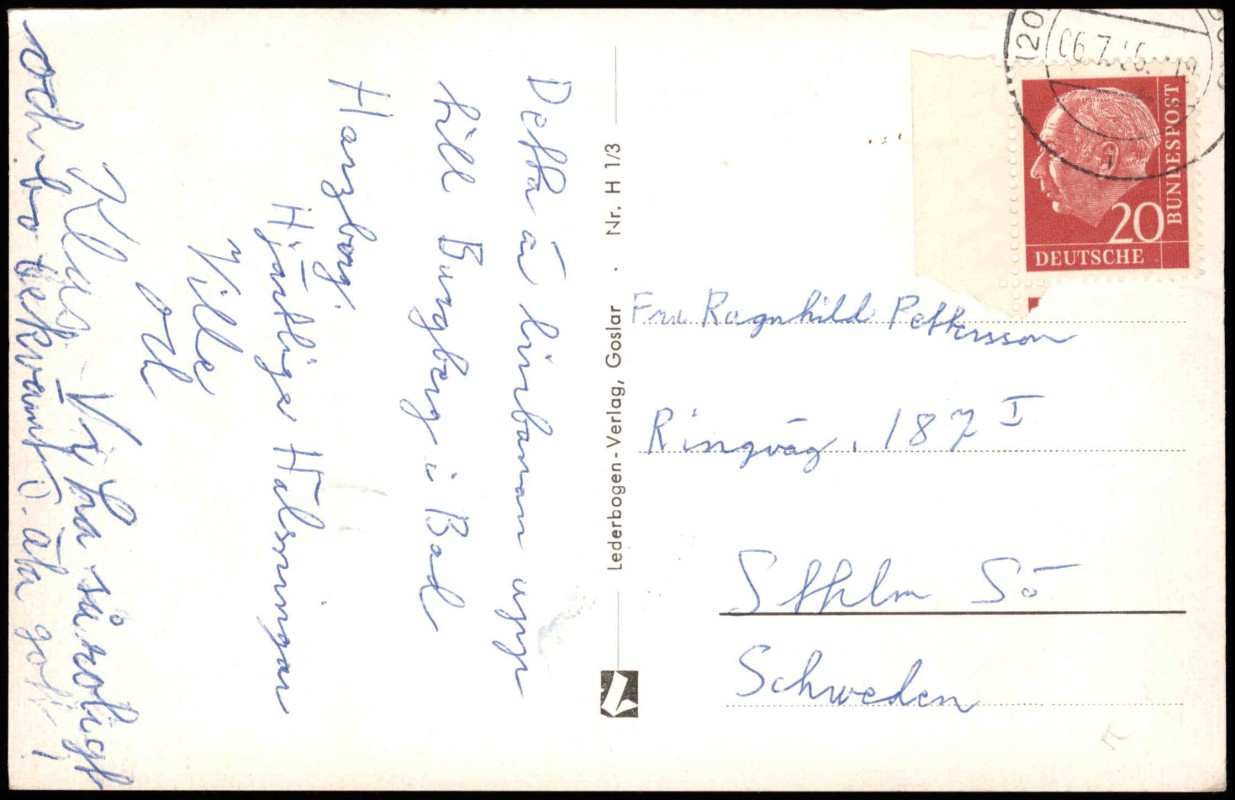 Detta är linbanan upp
till Burgberg i Bad
Harzborg.
Hjärtliga Hälsningar
Ville
och
Klun. Vi ha så roligt
och bo bekvämt o. äta gott!
Lederbogen-Verlag, Goslar · Nr. H 1/3
06.7.56.
20
BUNDESPOST
DEUTSCHE
Fru Ragnhild Pettersson
Ringväg. 187 I
Sthlm Sö
Schweden